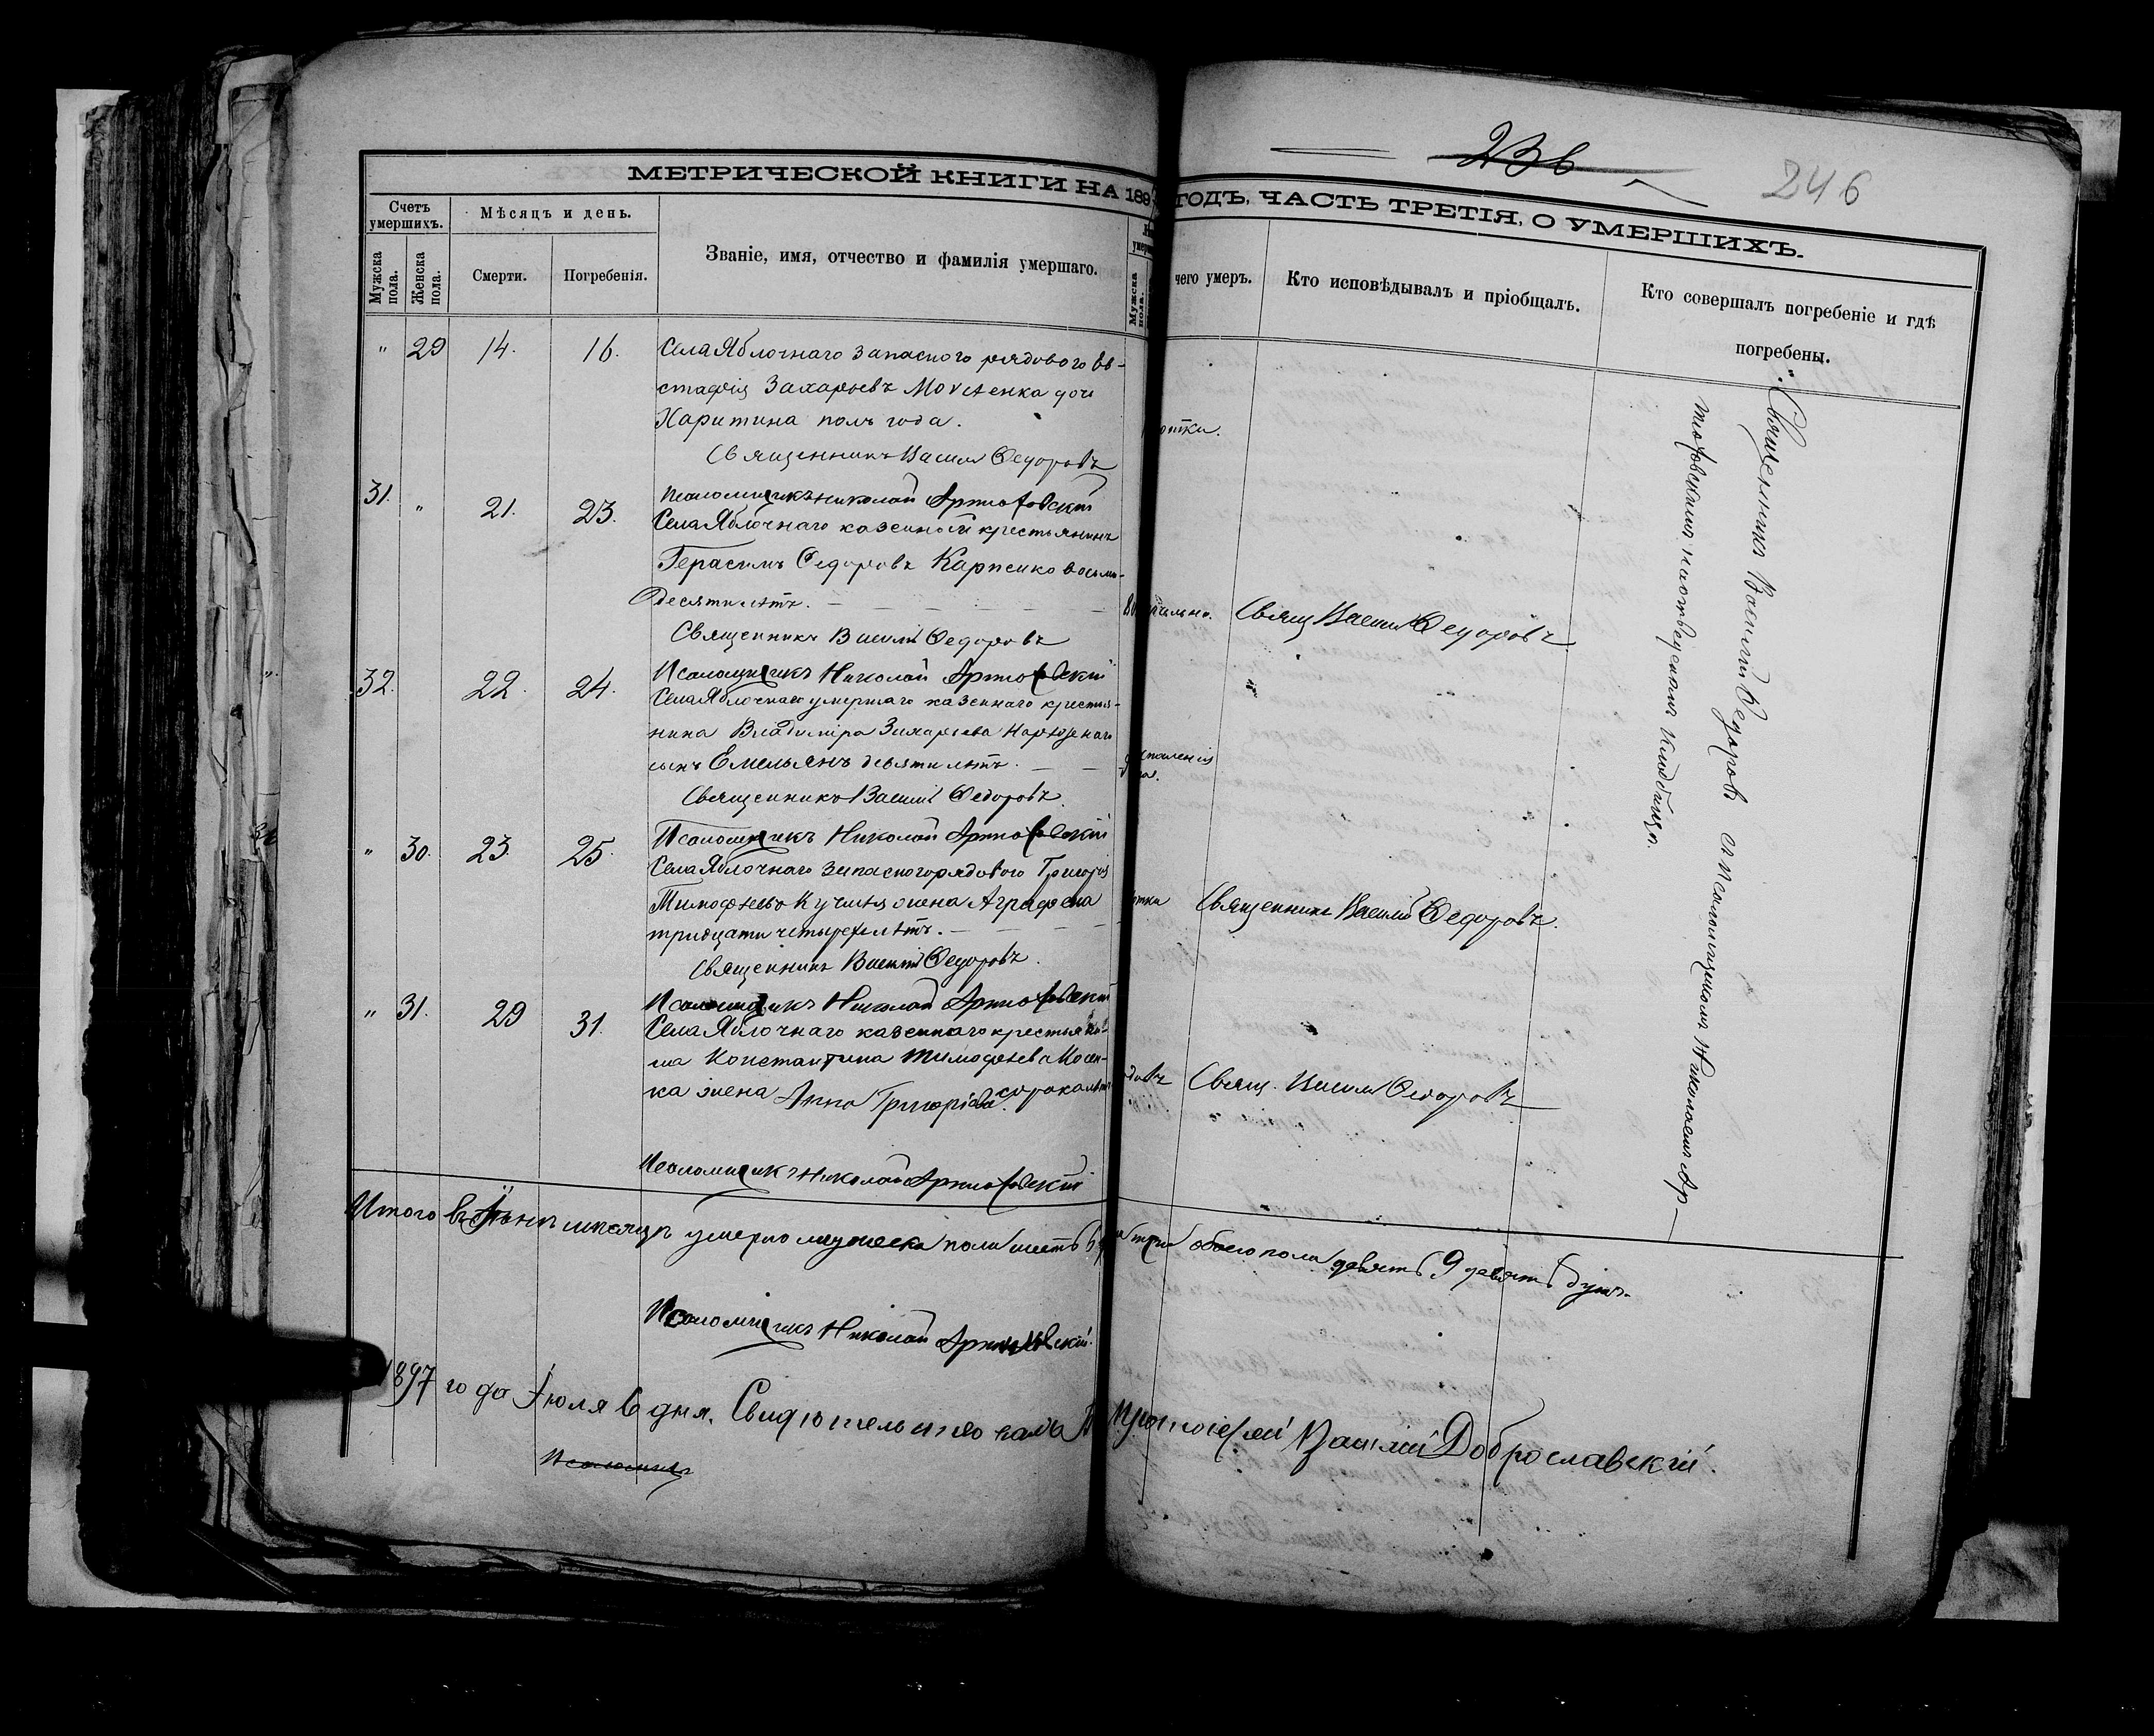 236
246
МЕТРИЧЕСКОЙ КНИГИ НА 1897 ГОДЪ, ЧАСТЬ ТРЕТІЯ, О УМЕРШИХЪ.
Счетъ умершихъ.
Мѣсяцъ и день.
Мужска пола.
Женска пола.
Смерти.
Погребенія.
Званіе, имя, отчество и фамилія умершаго.
Мужска пола.
чего умеръ.
Кто исповѣдывалъ и пріобщалъ.
Кто совершалъ погребеніе и гдѣ
погребены.
" 29 14. 16. Села Яблочнаго запасного рядового Ев-
стафія Захарьевъ дочь
Харитина полъ года.
Священникъ Василій Федоровъ
Псаломщикъ Николай Артюховскій
31. " 21. 23. Села Яблочнаго казенной крестьянинъ
Герасимъ Федоровъ Карпенко восьми-
десяти лѣтъ.
Свящ Василій Федоровъ
Священникъ Василій Федоровъ
Псаломщикъ Николай Артюховскій
32. 22. 24. Села Яблочнаго умершаго казеннаго крестья-
нина Владиміра Захарьева
сынъ Емельянъ девяти лѣтъ.
Священникъ Василій Федоровъ
Псаломщикъ Николай Артюховскій
" 30. 23. 25. Села Яблочнаго запасного рядового Григорія
Тимофѣева жена Аграфена
тридцати четырехъ лѣтъ.
Священникъ Василій Федоровъ.
Священникъ Василій Федоровъ.
Псаломщикъ Николай Артюховскій
" 31. 29 31. Села Яблочнаго казеннаго крестьяни-
на Константина Тимофѣева Мосен-
ка жена Анна Григоріева сорока лѣтъ
Свящ. Василій Федоровъ
Псаломщикъ Николай Артюховскій
Священникъ Василій Федоровъ съ псаломщикомъ Николаемъ Ар-
тюховскимъ на отведенномъ кладбищѣ.
Итого въ мѣсяцѣ умерло мужеска пола шесть 6 три обоего пола девять 9 девять душъ.
Псаломщикъ Николай Артюховскій.
1897 года Іюля 6 дня. Свидѣтельствовалъ Протоіерей Василій Доброславскій.
Псаломщ